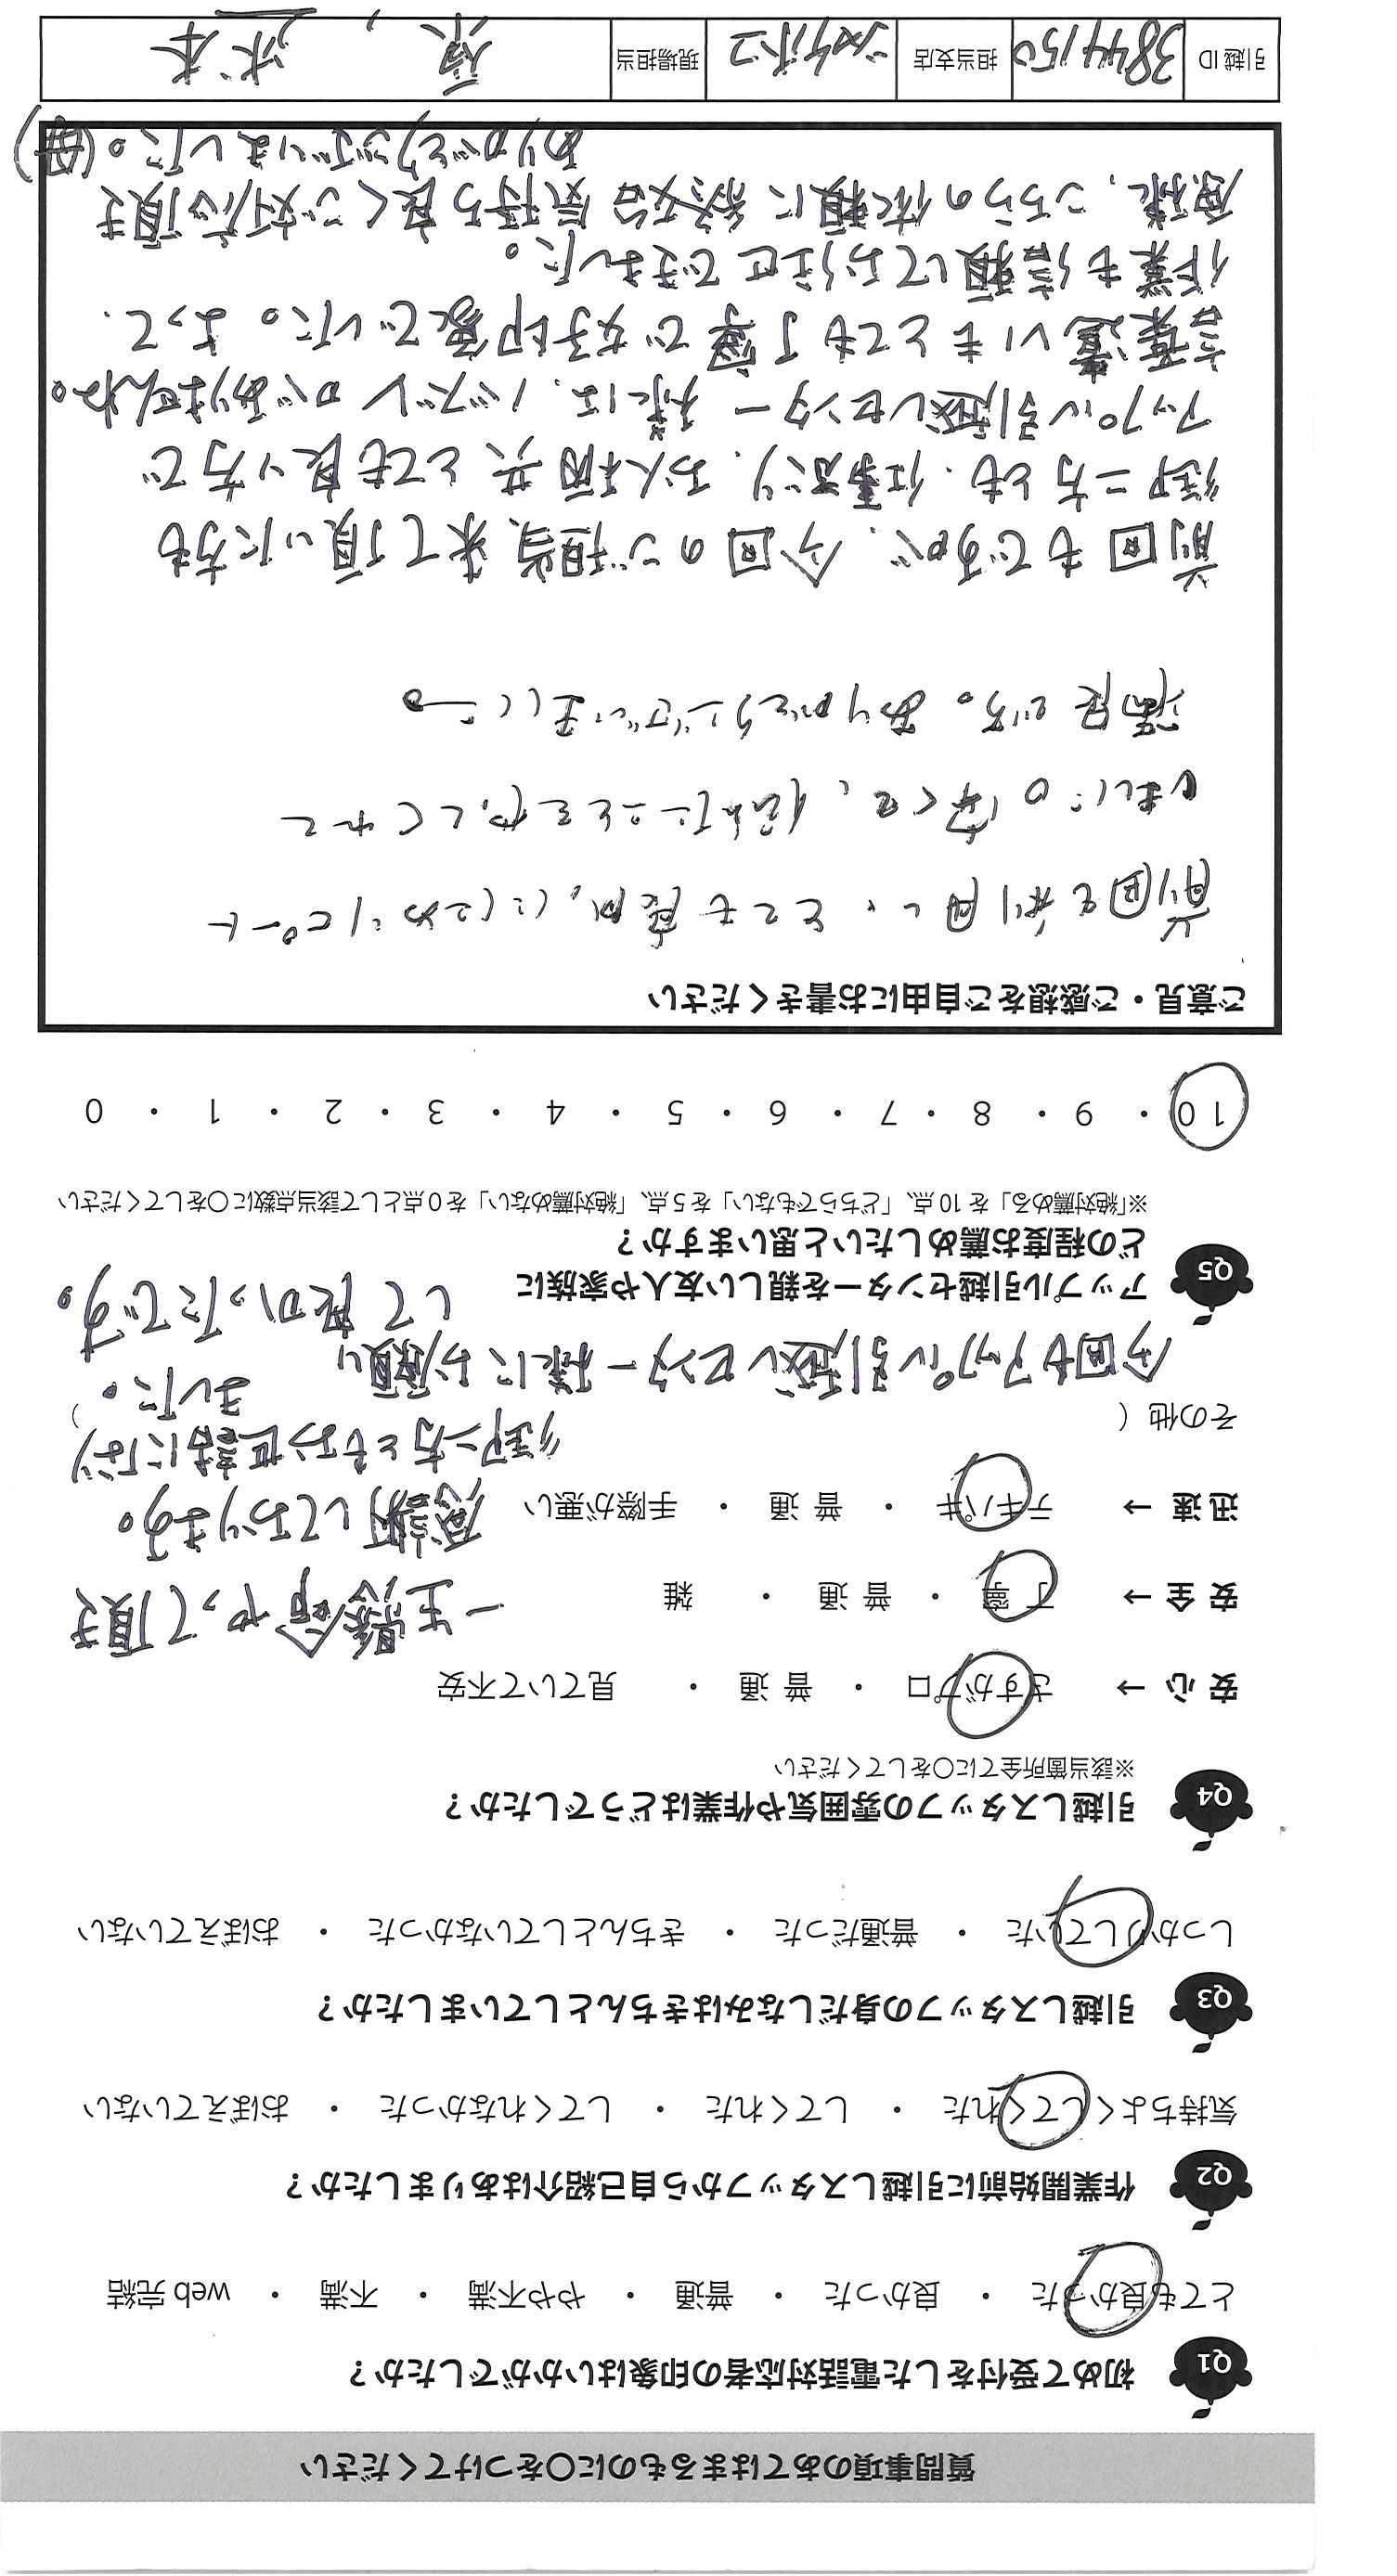 質問事項のあてはまるものに○をつけてください
Q1 初めて受付をした電話対応者の印象はいかがでしたか？
とても良かった ・ 良かった ・ 普通 ・ やや不満 ・ 不満 ・ web 完結
Q2 作業開始前に引越しスタッフから自己紹介はありましたか？
気持ちよくしてくれた ・ してくれた ・ してくれなかった ・ おぼえていない
Q3 引越しスタッフの身だしなみはきちんとしていましたか？
しっかりしていた ・ 普通だった ・ きちんとしていなかった ・ おぼえていない
Q4 引越しスタッフの雰囲気や作業はどうでしたか？
※該当箇所全てに○をしてください
安 心 → さすがプロ ・ 普 通 ・ 見ていて不安
安 全 → 丁 寧 ・ 普 通 ・ 雑
迅 速 → テキパキ ・ 普 通 ・ 手際が悪い
その他（ ）
一生懸命やって頂き
感謝しております。
御二方ともお世話になり
ました。
今回もアップル引越しセンター様にお願い
して良かったです。
Q5 アップル引越センターを親しい友人や家族に
どの程度お薦めしたいと思いますか？
※「絶対薦める」を 10 点、「どちらでもない」を 5 点、「絶対薦めない」を 0 点として該当点数に○をしてください
10 ・ 9 ・ 8 ・ 7 ・ 6 ・ 5 ・ 4 ・ 3 ・ 2 ・ 1 ・ 0
ご意見・ご感想をご自由にお書きください
前回も利用し、とても良かったためリピート
しました。安くて、頼んだことをやってくれて
満足です。ありがとうございました。
前回もですが、今回のご担当、来て頂いた方も
御二方とも、仕事ぶり、お人柄共とても良い方で
アップル引越しセンター様には、ハズレがありませんね。
言葉遣いもとても丁寧で好印象でした。よって、
作業も信頼してお任せできました。
原様、こちらの依頼に気持ち良くご対応頂き
ありがとうございました。(母)
引越 ID 3844150 担当支店 現場担当 原,